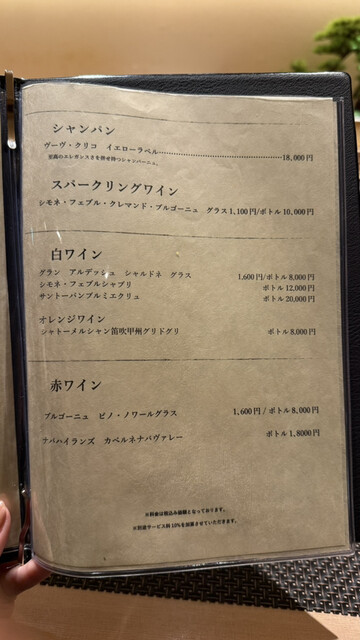 シャンパン
ヴーヴ・クリコ イエローラベル……………………………18,000円
至高のエレガンスさを併せ持つシャンパーニュ。
スパークリングワイン
シモネ・フェブル・クレマンド・ブルゴーニュ グラス1,100円/ボトル10,000円
白ワイン
グラン アルデッシュ シャルドネ グラス 1,600円/ボトル8,000円
シモネ・フェブルシャブリ ボトル12,000円
サントーバンプルミエクリュ ボトル20,000円
オレンジワイン
シャトーメルシャン笛吹甲州グリドグリ ボトル8,000円
赤ワイン
ブルゴーニュ ピノ・ノワールグラス 1,600円 / ボトル8,000円
ナパハイランズ カベルネナパヴァレー ボトル1,8000円
※料金は税込み価格となっております。
※別途サービス料10%を加算させていただきます。